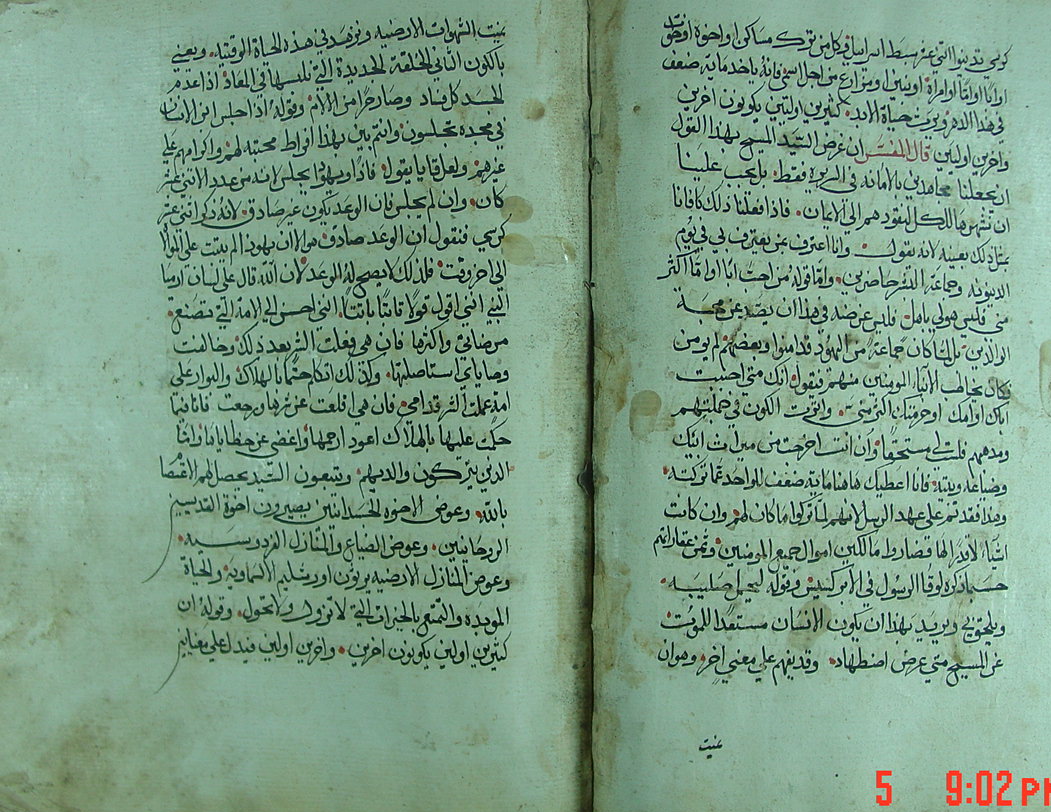 كرسي تدينوا اثنى عشر سبط اسراييل فكل من ترك مساكن او اخوه او اخوات
او ابًا او امًا او امراة او بنين او مزارع من اجل اسمي فانه ياخد مايه ضعف
في هدا الدهر ويرت حياة الابد. كثيرين اولين يكونون اخرين
واخرين اولين قال المفسر ان غرض السيد المسيح بهدا القول
ان يجعلنا مجاهدين بالامانه في السريره فقط. بل يجب علينا
ان نشهرها للكل لنقودهم الى الايمان. فاذا فعلنا ذلك كافانا
بمثل ذلك بعينه لانه يقول. وانا اعترف بمن يعترف بي في يوم
الدينونه وجماعة البشر حاضرين. وامّا قوله من احبّ ابًا او امًا اكثر
مني فليس هولي باهل. فليس غرضه في هدا ان يصد عن محبة
الوالدين بل لما كان جماعة من اليهود قد امنوا وبعضهم لم يومن
فكان يخاطب الابناء المومنين منهم فيقول انك متي احببت
اباك او امك او حرمتك اكثر مني. واثرت الكون في جملتهم
ومدهبهم فلست لي مستحقًا وان انت اخرجت من ميرات ابيك
وضياعه وبيته. فانا اعطيك هاهنا مايه ضعف للواحد عما تركته.
وهدا فقد تم على عهد الرسل لانهم لما تركوا ما كان لهم وان كانت
اشياء لا قدر لها فصاروا مالكين اموال جميع المومنين وتمن عقاراتهم
حسبما دكره لوقا الرسول في الابركسيس وقوله ليحمل صليبه
ويلحق بي ويريد بهدا ان يكون الانسان مستعدًا للموت
عن المسيح متي عرض اضطهاد. وقد يفهم على معني اخر وهو ان
عنيت
عنيت الشهوات الارضيه ونزهد في هده الحياة الوقتيه. ويعني
بالكون الثاني الخلقة الجديدة التي نلبسها في المعاد ادا عدم
الجسد كل فساد وصار حرًا من الالم وقوله اذا جلس ابن الانسان
في مجده تجلسون وانتم يبين بهدا افراط محبته لهم واكرامهم على
غيرهم ولعل قايل يقول. فاذًا ويهودا يجلس لانه من عدد الاثني عشر
كان. وان لم يجلس فان الوعد يكون غير صادق. لانه ذكر اثني عشر
كرسي فنقول ان الوعد صادق هو الا ان يهودا لم يثبت على الولا
الى اخر وقت. فلذلك لا يصح له الوعد لان الله قال على لسان ارميا
النبي انني اقول قولاً ثابتًا باتتًا. انني احسن الي الامة التي تصنع
مرضاتي واكثرها فان هي فعلت الشر بعد ذلك وخالفت
وصاياي استاصلتها. وكذلك ان احكم حتمًا بالهلاك والبوار على
امة عملت الشر قدامي. فان هي اقلعت عن شرها ورجعت فانا فيما
حكمت عليها بالهلاك اعود ارحمها واغضي عن خطاياها وايضًا
الدين يتركون والديهم ويتبعون السيد يحصل لهم الاختصاص
بالله. وعوض الاخوه الجسدانيين يصيرون اخوة القديسين
الروحانيين. وعوض الضياع والمنازل الفردوسيه.
وعوض المنازل الارضيه يرتون اورشليم السماويه والحياة
الموبده والتمتع بالخيرات التي لا تزول ولا تحول. وقوله ان
كثيرين اولين يكونون اخرين. واخرين اولين فيدل على معانيين
5 9:02 PM